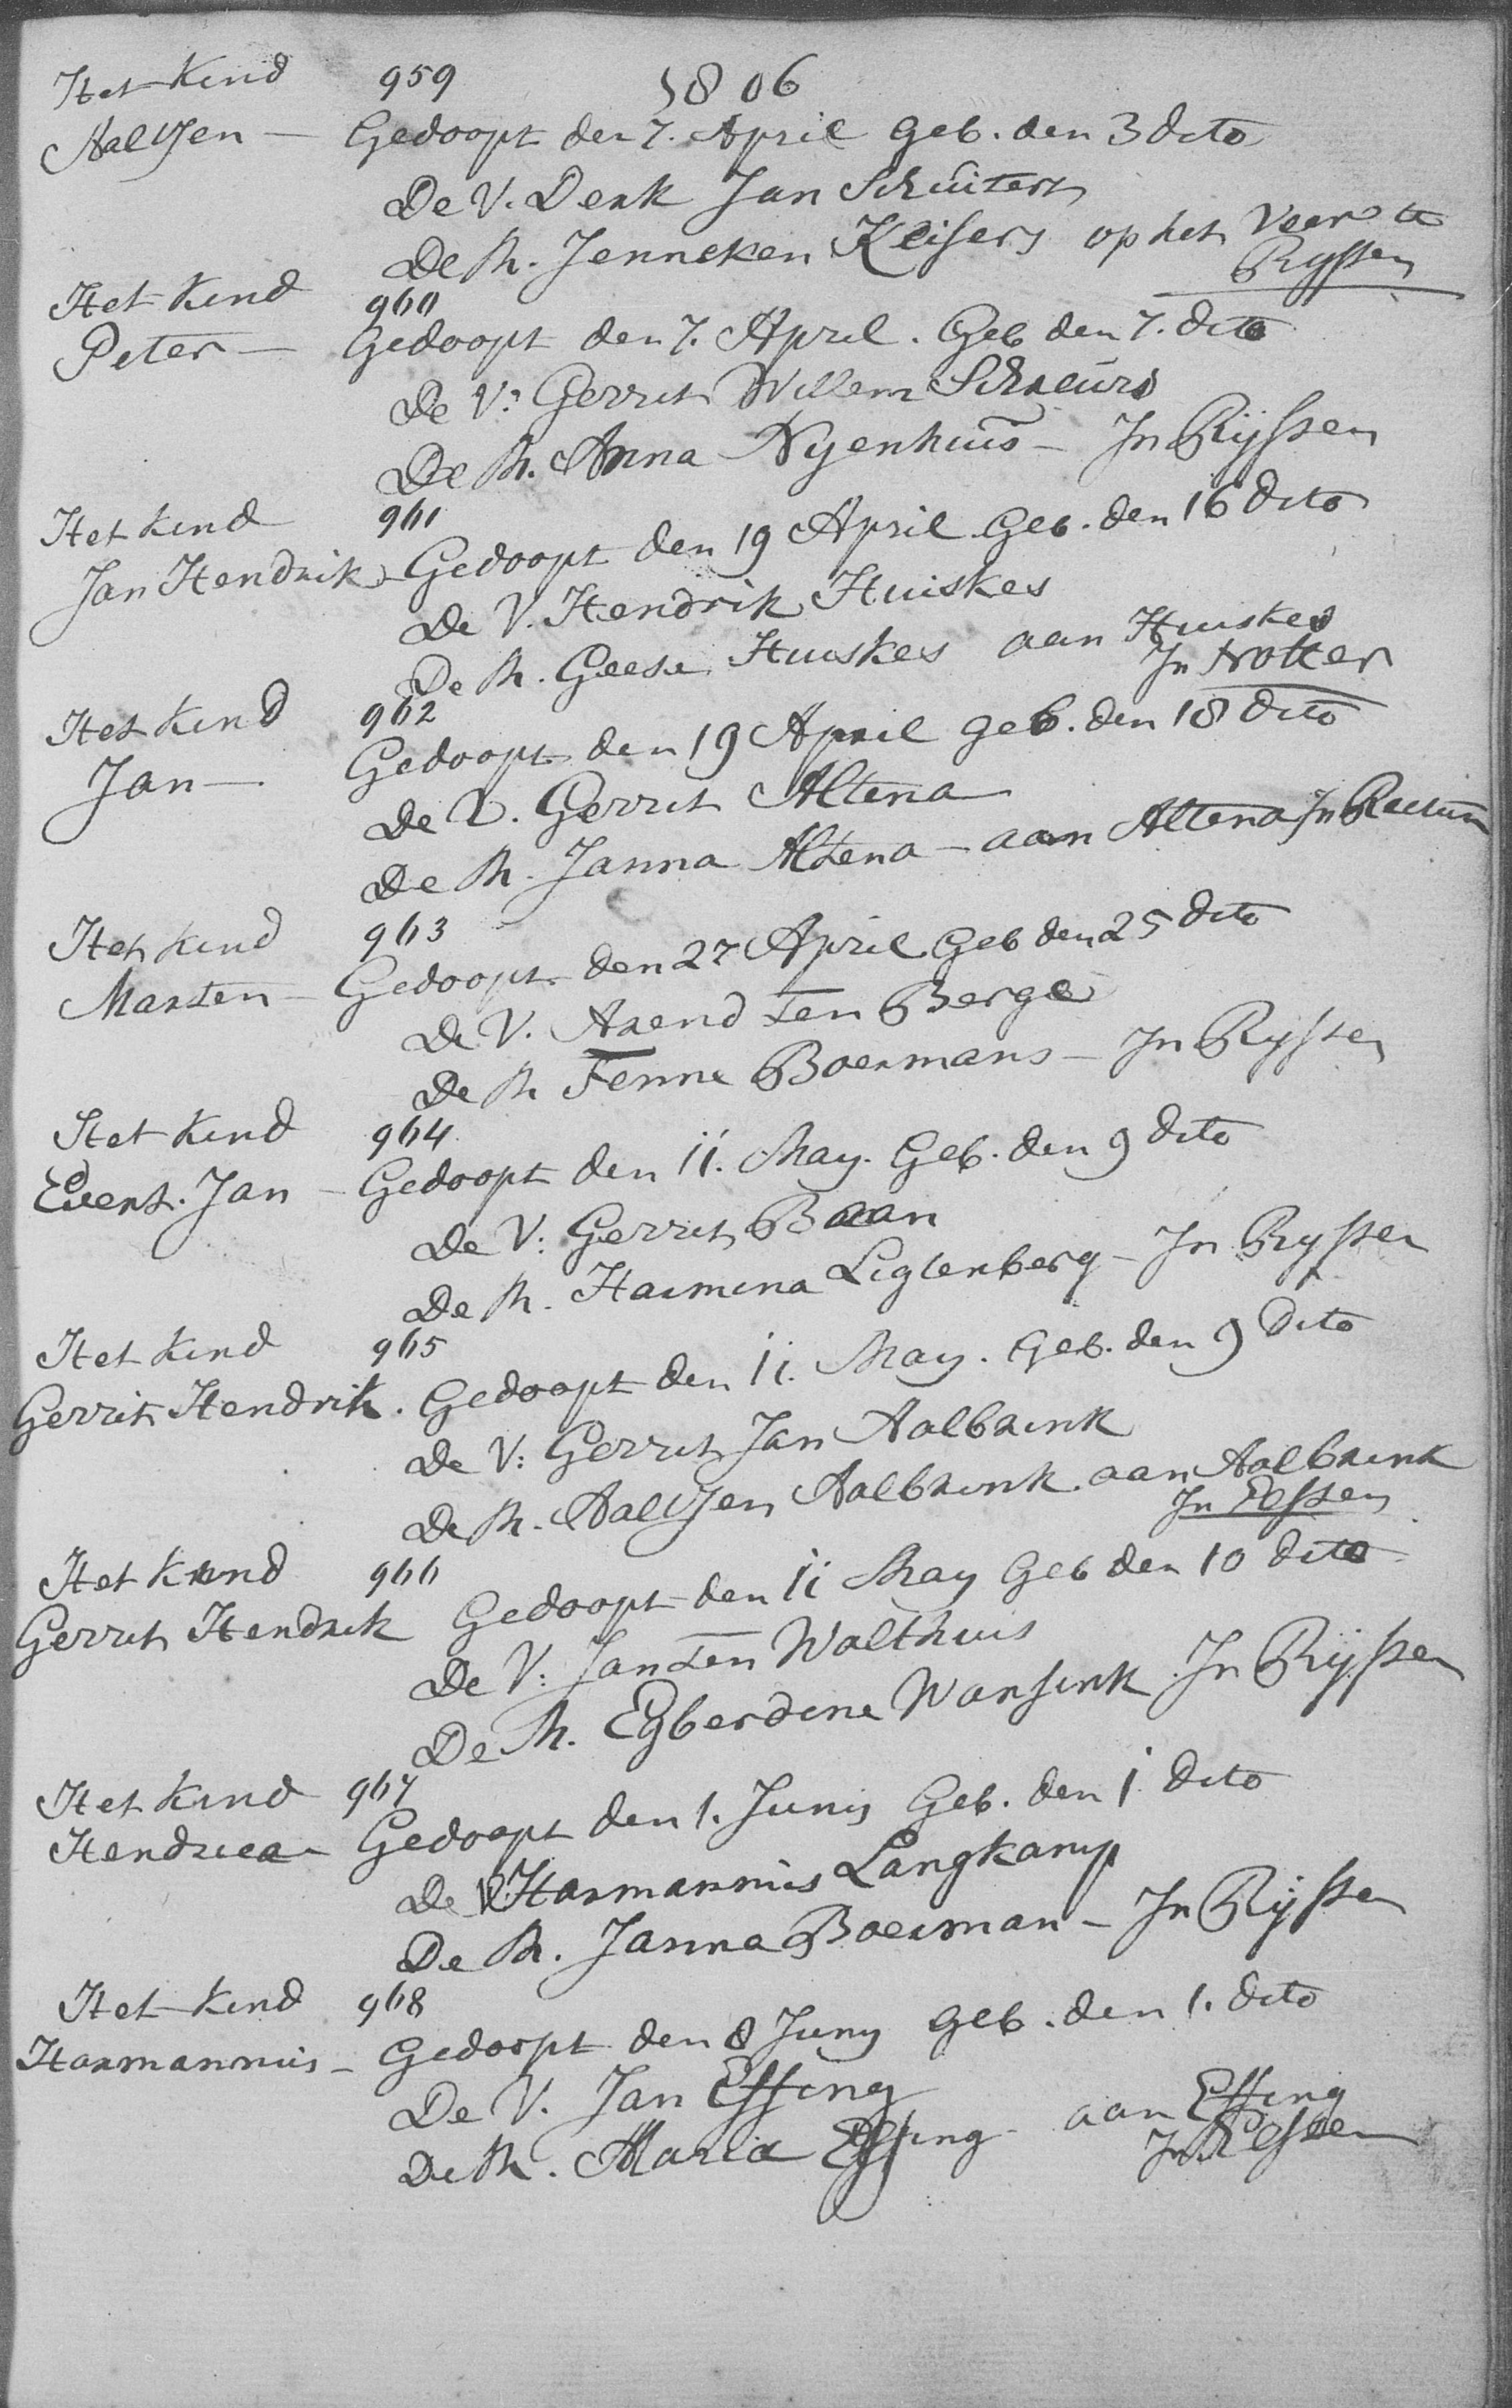 1806
Het Kind 959
Aaltjen — Gedoopt den 7. April geb. den 3 dito
De V. Derk Jan Schuiters
De M. Jenneken Keisers op het Veer te
Ryssen
Het Kind 960
Peter — Gedoopt den 7. April. Geb den 7. dito
De V: Gerrit Willem Schreurs
De M. Anna Nyenhuis — In Ryssen
Het kind 961
Jan Hendrik — Gedoopt den 19 April Geb. den 16 dito
De V. Hendrik Huiskes
De M. Geese Huiskes aan Huiskes
In Notter
Het Kind 962
Jan — Gedoopt den 19 April geb. den 18 dito
De V. Gerrit Altena
De M. Janna Altena — aan Altena In Rectum
Het kind 963
Marten — Gedoopt den 27 April Geb den 25 dito
De V. Arend ten Berge
De M Fenne Boermans — In Ryssen
Het Kind 964
Evert. Jan — Gedoopt den 11. May. Geb. den 9 dito
De V: Gerrit Baan
De M. Harmina Ligtenberg — In Ryssen
Het kind 965
Gerrit Hendrik. Gedoopt den 11. May. Geb. den 9 Dito
De V: Gerrit Jan Aalbrink
De M. Aaltjen Aalbrink aan Aalbrink
In Elssen
Het Kind 966
Gerrit Hendrik Gedoopt den 11 May Geb den 10 dito
De V: Jan ten Walthuis
De M. Egberdine Wansink In Ryssen
Het Kind 967
Hendrica — Gedoopt den 1. Juny Geb. den 1 dito
De V Harmannus Langkamp
De M. Janna Boerman — In Ryssen
Het Kind 968
Harmannus — Gedoopt den 8 Juny geb. den 1. dito
De V. Jan Effing
De M. Maria Effing aan Effing
In Elssen